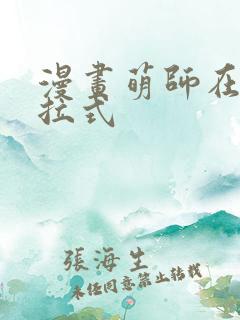 漫畫萌師在
拉式
張海生
未經同意禁止轉載